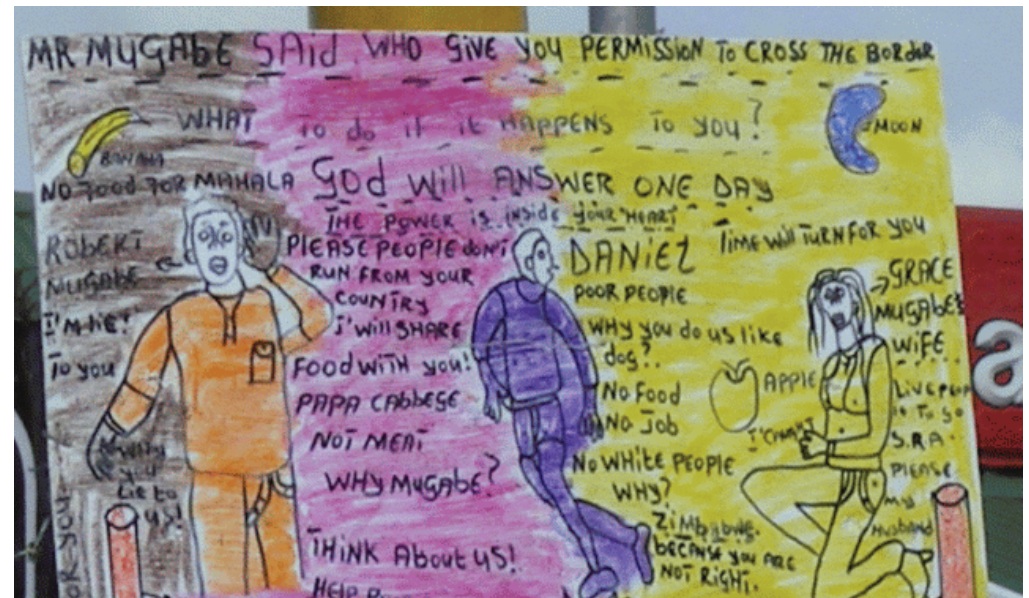 MR MUGAbE SAid WHO GiVE YOU PERMiSSiON To CROSS THE BORdER
WHAT To do if it HAPPENS To YOU?
BANANA
MOON
NO FOOD FOR MAHALA
God Will ANSWER ONE DAY
THE POWER is inSidE YOUR HEART
TiME Will TURN FOR YOU
ROBERT
MUGABE
I'M LiE!
To you
WHY
you
Lie to
us!
PLEASE PEOPLE doN'T
RUN FROM YOUR
COUNTRY
I'Will SHARE
FOOD WiTH YOU!
PAPA CAbbEGE
NOT MEAT
WHY MUGAbE?
THiNK About US!
HELP
DANiEL
POOR PEOPLE
WHY YOU do US LiKE
dog?
NO FOOd
NO Job
NO WHiTE PEOPLE
WHY?
ZiMbAbwe.
bECAUSE YOU ARE
NOT RiGHT.
APPLE
GRACE
MUGAbE'S
WiFE
LiVE PEOP
iS To Go
S.R.A.
PLEASE
MY
HUSbANd
a